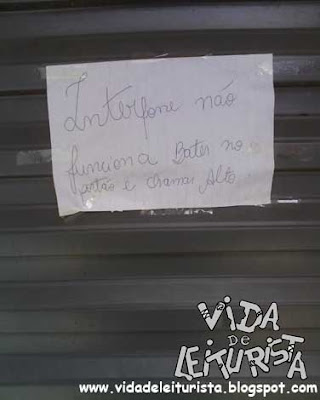 Interfone não
funciona Bater no
portão e chamar Alto.
VIDA
DE
LEITURISTA
www.vidadeleiturista.blogspot.com